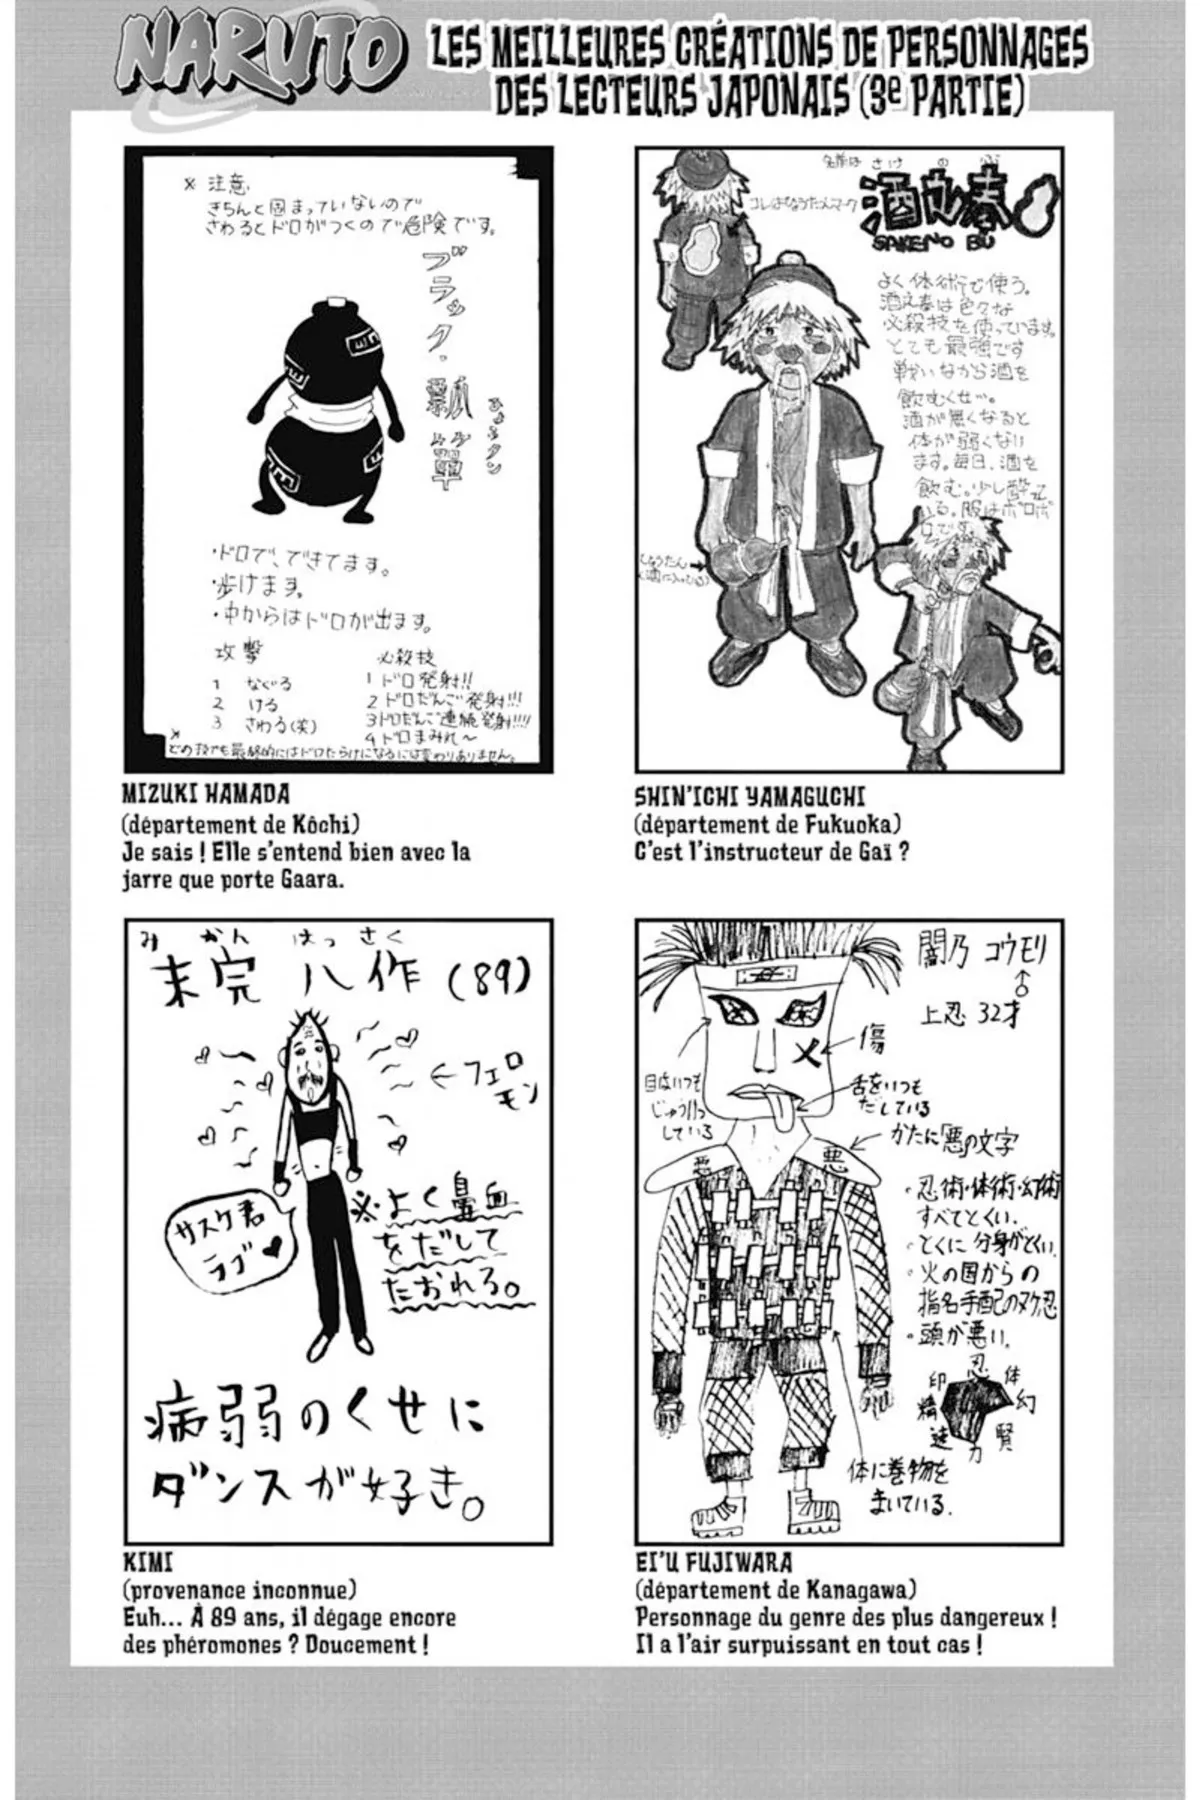 NARUTO
LES MEILLEURES CRÉATIONS DE PERSONNAGES
DES LECTEURS JAPONAIS (3e PARTIE)
※ 注意
きちんと固まっていないので
さわるとドロがつくので危険です。
ブラック・瓢箪
ひょうタン
・ドロで、できてます。
・歩けます。
・中からはドロが出ます。
攻撃
1 なぐる
2 ける
3 さわる(笑)
必殺技
1 ドロ発射!!
2 ドロだんご発射!!!
3 ドロだんご連続発射!!!!
4 ドロまみれ〜
※
どの技でも最終的にはドロだらけになるには変わりありません。
MIZUKI HAMADA
(département de Kôchi)
Je sais ! Elle s'entend bien avec la
jarre que porte Gaara.
名前は さけ の ぶ
コレはひょうたんマーク
SAKENO BU
よく体術で使う。
酒乃奉は色々な
必殺技を使っています。
とても最強です
戦いながら酒を
飲むくせ…。
酒が無くなると
体が弱くなり
ます。毎日、酒を
飲む。少し酔って
いる。服はボロボ
ロです。
ひょうたん
SHIN'ICHI YAMAGUCHI
(département de Fukuoka)
C'est l'instructeur de Gaï ?
み かん はっ さく
未完 八作 (89)
←フェロ
モン
サスケ君
ラブ♥
※よく鼻血
をだして
たおれる。
病弱のくせに
ダンスが好き。
KIMI
(provenance inconnue)
Euh... À 89 ans, il dégage encore
des phéromones ? Doucement !
闇乃 コウモリ
上忍 32才
傷
目はいつも
じゅうけつ
している
舌をいつも
だしている
かたに「悪」の文字
悪 悪
・忍術・体術・幻術
すべてとくい。
・とくに分身がとくい。
・火の国からの
指名手配のヌケ忍
・頭が悪い。
忍 体 幻 賢 力 速 精 印
体に巻物を
まいている。
EI'U FUJIWARA
(département de Kanagawa)
Personnage du genre des plus dangereux !
Il a l'air surpuissant en tout cas !